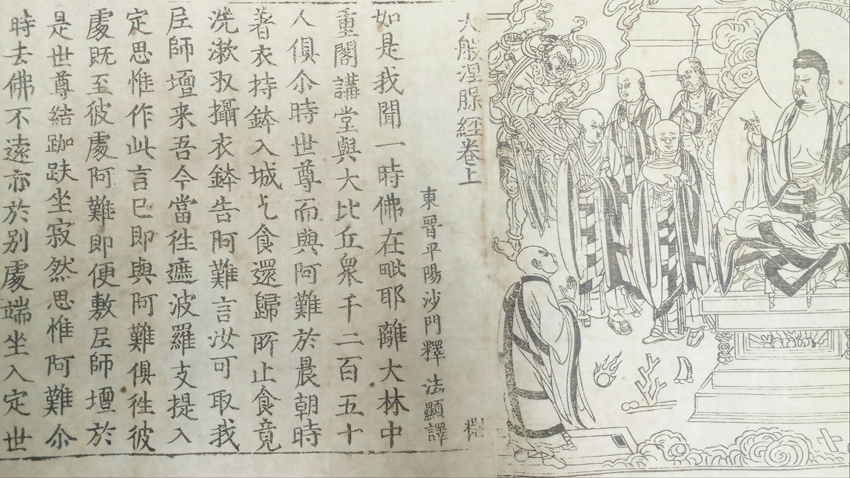 大般涅脲經卷上
東晉平陽沙門釋法顯譯
如是我聞一時佛在毗耶離大林中
重閣講堂與大比丘衆千二百五十
人俱尒時世尊而與阿難於晨朝時
著衣持鉢入城乞食還歸所止食竟
洗漱収攝衣鉢告阿難言汝可取我
𡰱師壇来吾今當徃遮波羅支提入
定思惟作此言已即與阿難俱徃彼
處既至彼處阿難即便敷𡰱師壇於
是世尊結跏趺坐寂然思惟阿難尒
時去佛不遠亦於别處端坐入定世